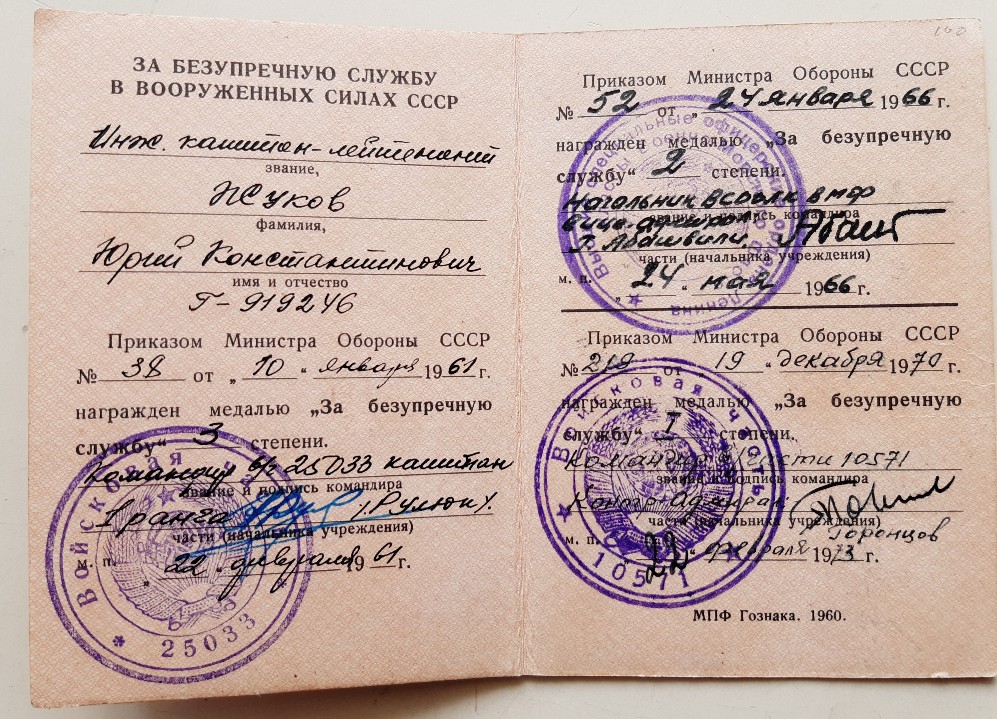 ЗА БЕЗУПРЕЧНУЮ СЛУЖБУ
В ВООРУЖЕННЫХ СИЛАХ СССР
Инж. капитан-лейтенант
звание,
Жуков
фамилия,
Юрий Константинович
имя и отчество
Г-919246
Приказом Министра Обороны СССР
№ 38 от „10“ января 1961 г.
награжден медалью „За безупречную
службу“ 3 степени.
Командир в/ч 25033 капитан
звание и подпись командира
1 ранга /Рулюк/
части (начальника учреждения)
м. п. „22“ февраля 1961 г.
Войсковая
25033
Приказом Министра Обороны СССР
№ 52 от „24 января 1966 г.
награжден медалью „За безупречную
службу“ 2 степени.
Начальник
звание и подпись командира
Вице-адмирал
Г. Абашвили
части (начальника учреждения)
м. п. „24“ мая 1966 г.
Высшие специальные офицерские ордена Ленина
Приказом Министра Обороны СССР
№ 219 от 19 „декабря 1970 г.
награжден медалью „За безупречную
службу“ I степени.
Командир в/части 10571
звание и подпись командира
Контр-адмирал
части (начальника учреждения)
Торонцов
м. п. „22“ февраля 1973 г.
Войсковая часть
10571
МПФ Гознака. 1960.